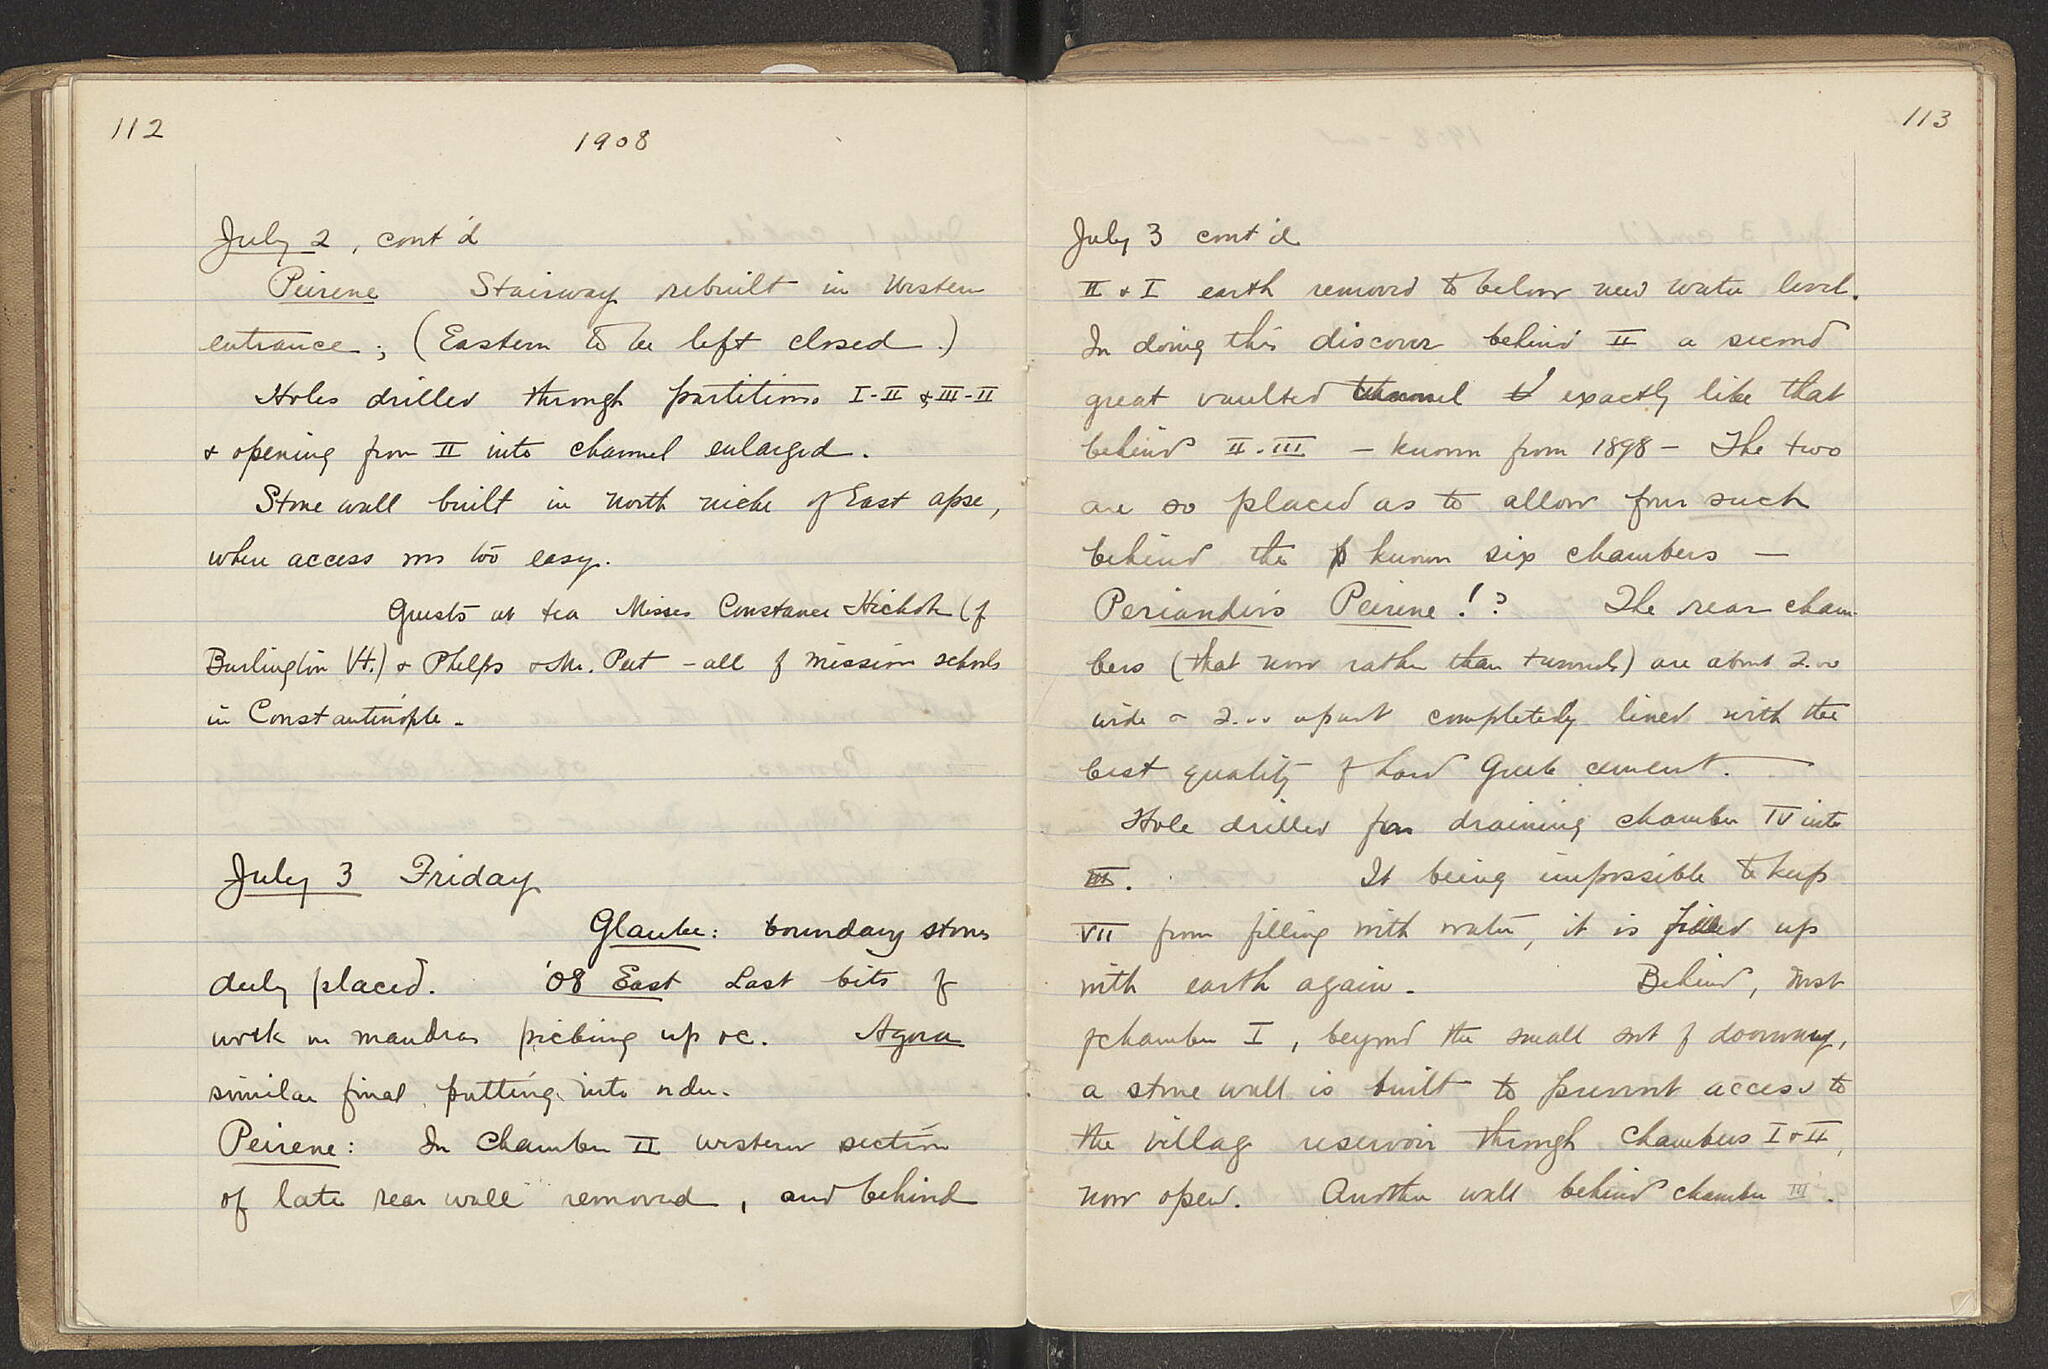 112
1908
July 2, cont'd
Peirene Stairway rebuilt in Western
entrance; (Eastern to be left closed.)
Holes drilled through partitions I-II & III-II
& opening from II into channel enlarged.
Stone wall built in north niche of East apse,
where access was too easy.
Guests at tea Misses Constance (of
Burlington Vt.) & Phelps & Mr. Peet - all of mission schools
in Constantinople.
July 3 Friday
Glauke: boundary stones
duly placed. '08 East Last bits of
work in mandras picking up &c. Agora
similar final putting into order.
Peirene: In Chamber II western section
of late rear wall removed, and behind
113
July 3 cont'd
II & I earth removed to below new water level.
In doing this discover behind II a second
great vaulted channel exactly like that
behind II-III - known from 1898 - The two
are so placed as to allow four such
behind the known six chambers —
Periander's Peirene!? The rear cham-
bers (that now rather than tunnels) are about 2.00
wide & 2.00 apart completely lined with the
best quality of hard Greek cement. —
Hole drilled for draining chamber IV into
III. It being impossible to keep
VII from filling with water, it is filled up
with earth again. Behind, West
of chamber I, beyond the small sort of doorway,
a stone wall is built to prevent access to
the village reservoir through Chambers I & II,
now open. Another wall behind chamber III.